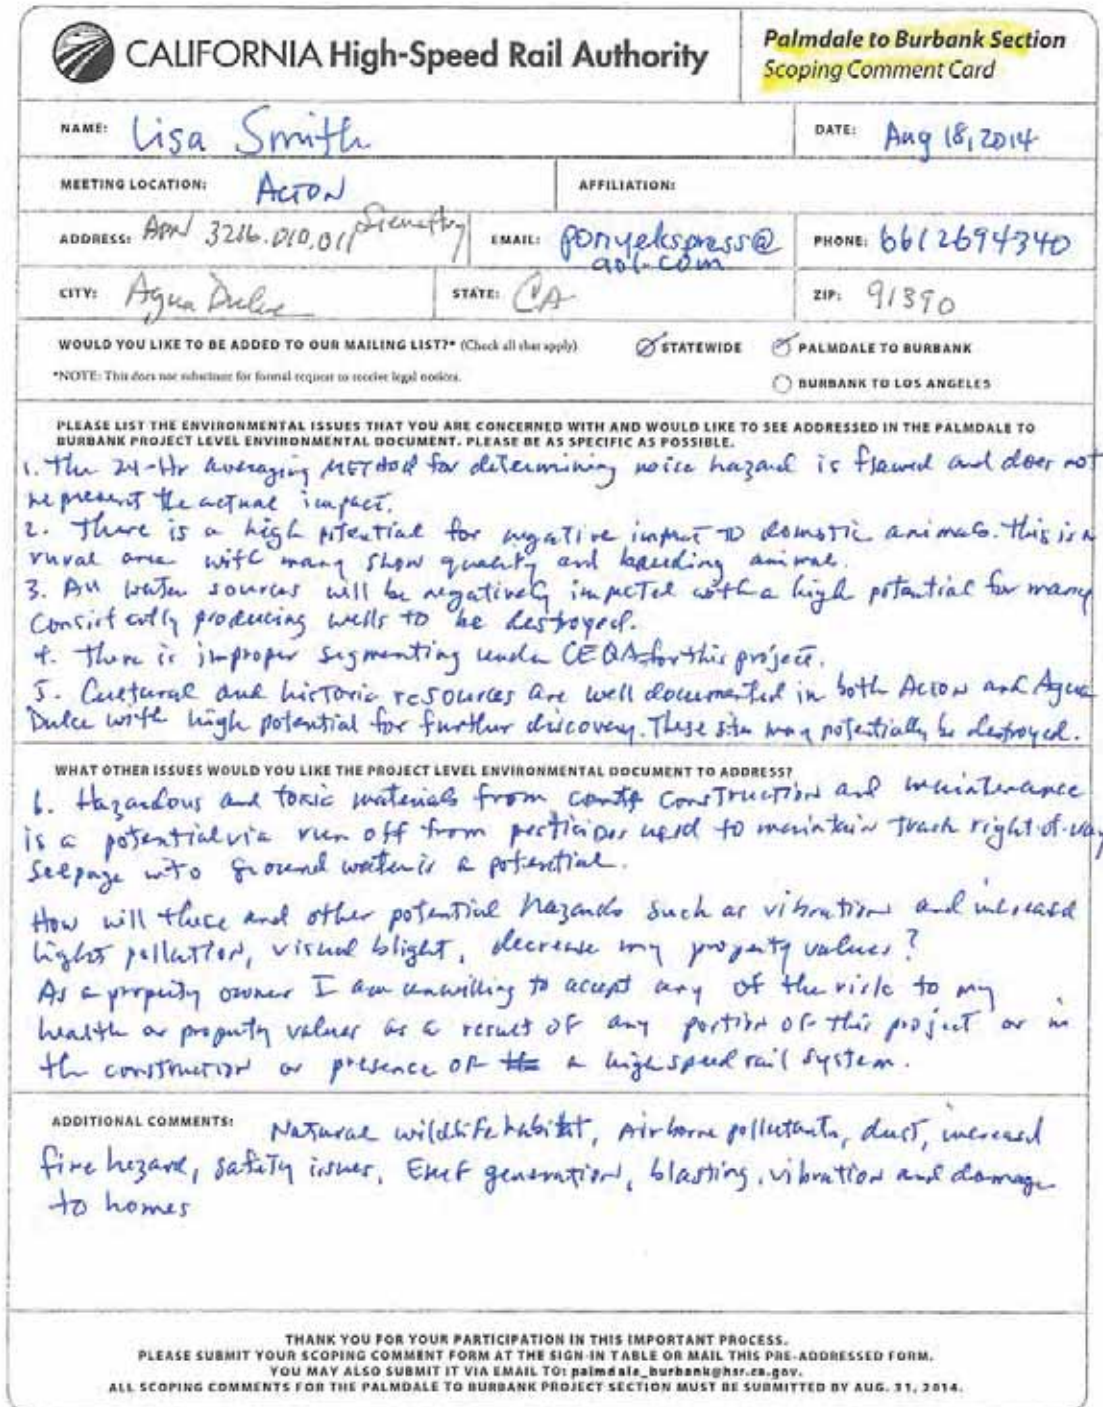 CALIFORNIA High-Speed Rail Authority
Palmdale to Burbank Section
Scoping Comment Card
NAME: Lisa Smith
DATE: Aug 18, 2014
MEETING LOCATION: ACTON
AFFILIATION:
ADDRESS: APN 3216.010.011
EMAIL: ponyekspress@
aol.com
PHONE: 6612694340
CITY: Agua Dulce
STATE: CA
ZIP: 91390
WOULD YOU LIKE TO BE ADDED TO OUR MAILING LIST?* (Check all that apply)
STATEWIDE
PALMDALE TO BURBANK
*NOTE: This does not substitute for formal request to receive legal notices.
BURBANK TO LOS ANGELES
PLEASE LIST THE ENVIRONMENTAL ISSUES THAT YOU ARE CONCERNED WITH AND WOULD LIKE TO SEE ADDRESSED IN THE PALMDALE TO
BURBANK PROJECT LEVEL ENVIRONMENTAL DOCUMENT. PLEASE BE AS SPECIFIC AS POSSIBLE.
1. The 24-Hr averaging METHod for determining noise hazard is flawed and does not
represent the actual impact.
2. There is a high potential for negative impact to domestic animals. This is a
rural area with many show quality and breeding animal.
3. All water sources will be negatively impacted with a high potential for many
consistently producing wells to be destroyed.
4. There is improper segmenting under CEQA for this project.
5. Cultural and historic resources are well documented in both Acton and Agua
Dulce with high potential for further discovery. These sites may potentially be destroyed.
WHAT OTHER ISSUES WOULD YOU LIKE THE PROJECT LEVEL ENVIRONMENTAL DOCUMENT TO ADDRESS?
6. Hazardous and toxic materials from construction and maintenance
is a potential via run off from pesticides used to maintain track right-of-way
seepage into ground water is a potential.
How will these and other potential hazards such as vibration and increased
light pollution, visual blight, decrease my property values?
As a property owner I am unwilling to accept any of the risk to my
health or property values as a result of any portion of this project or in
the construction or presence of a high speed rail system.
ADDITIONAL COMMENTS: Natural wildlife habitat, Airborne pollutants, dust, increased
fire hazard, safety issues, EMF generation, blasting, vibration and damage
to homes
THANK YOU FOR YOUR PARTICIPATION IN THIS IMPORTANT PROCESS.
PLEASE SUBMIT YOUR SCOPING COMMENT FORM AT THE SIGN-IN TABLE OR MAIL THIS PRE-ADDRESSED FORM.
YOU MAY ALSO SUBMIT IT VIA EMAIL TO: palmdale_burbank@hsr.ca.gov.
ALL SCOPING COMMENTS FOR THE PALMDALE TO BURBANK PROJECT SECTION MUST BE SUBMITTED BY AUG. 31, 2014.